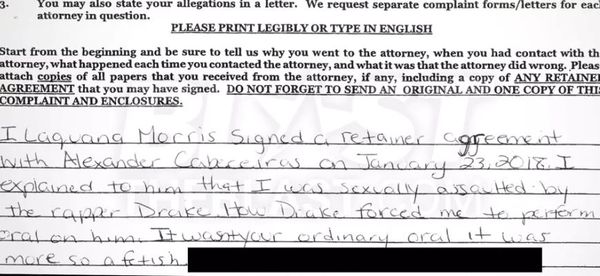 3. You may also state your allegations in a letter. We request separate complaint forms/letters for each
attorney in question.
PLEASE PRINT LEGIBLY OR TYPE IN ENGLISH
Start from the beginning and be sure to tell us why you went to the attorney, when you had contact with th
attorney, what happened each time you contacted the attorney, and what it was that the attorney did wrong. Pleas
attach copies of all papers that you received from the attorney, if any, including a copy of ANY RETAINE
AGREEMENT that you may have signed. DO NOT FORGET TO SEND AN ORIGINAL AND ONE COPY OF THI
COMPLAINT AND ENCLOSURES.
I Laquana Morris Signed a retainer agreement
with Alexander Cabeceiras on January 23, 2018. I
explained to him that I was sexually assaulted by
the rapper Drake. How Drake forced me to perform
oral on him. It wasnt your ordinary oral it was
more so a fetish.